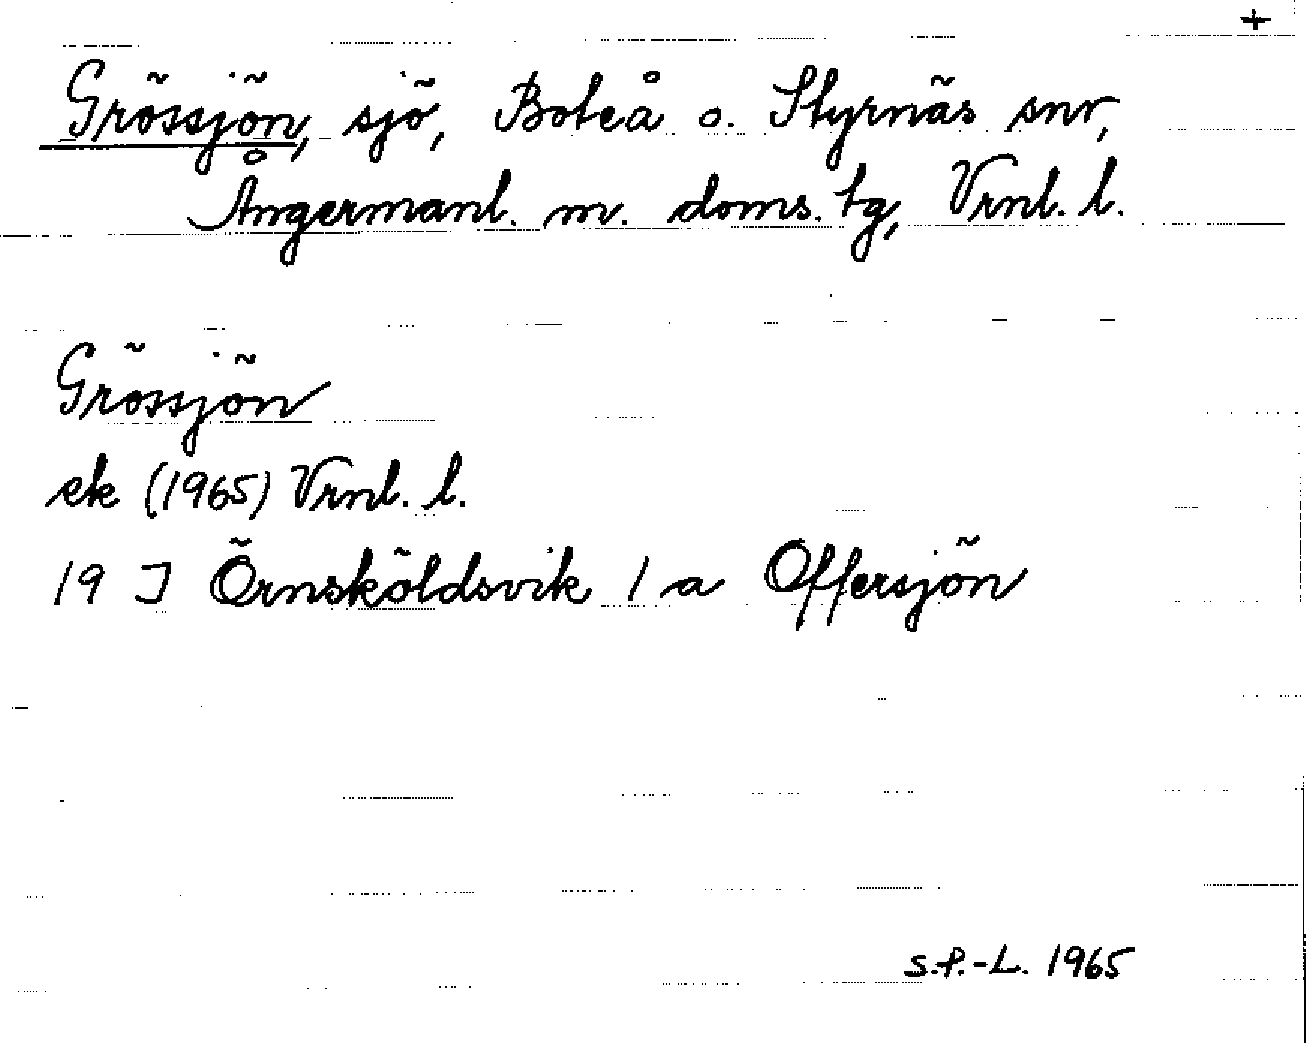 +
Grössjön, sjö, Boteå o. Styrnäs snr,
Ångermanl. m. doms. tg, Vrnl. l.
Grössjön
ek (1965) Vrnl. l.
19 J Örnsköldsvik 1 a Offersjön
S.P.-L. 1965